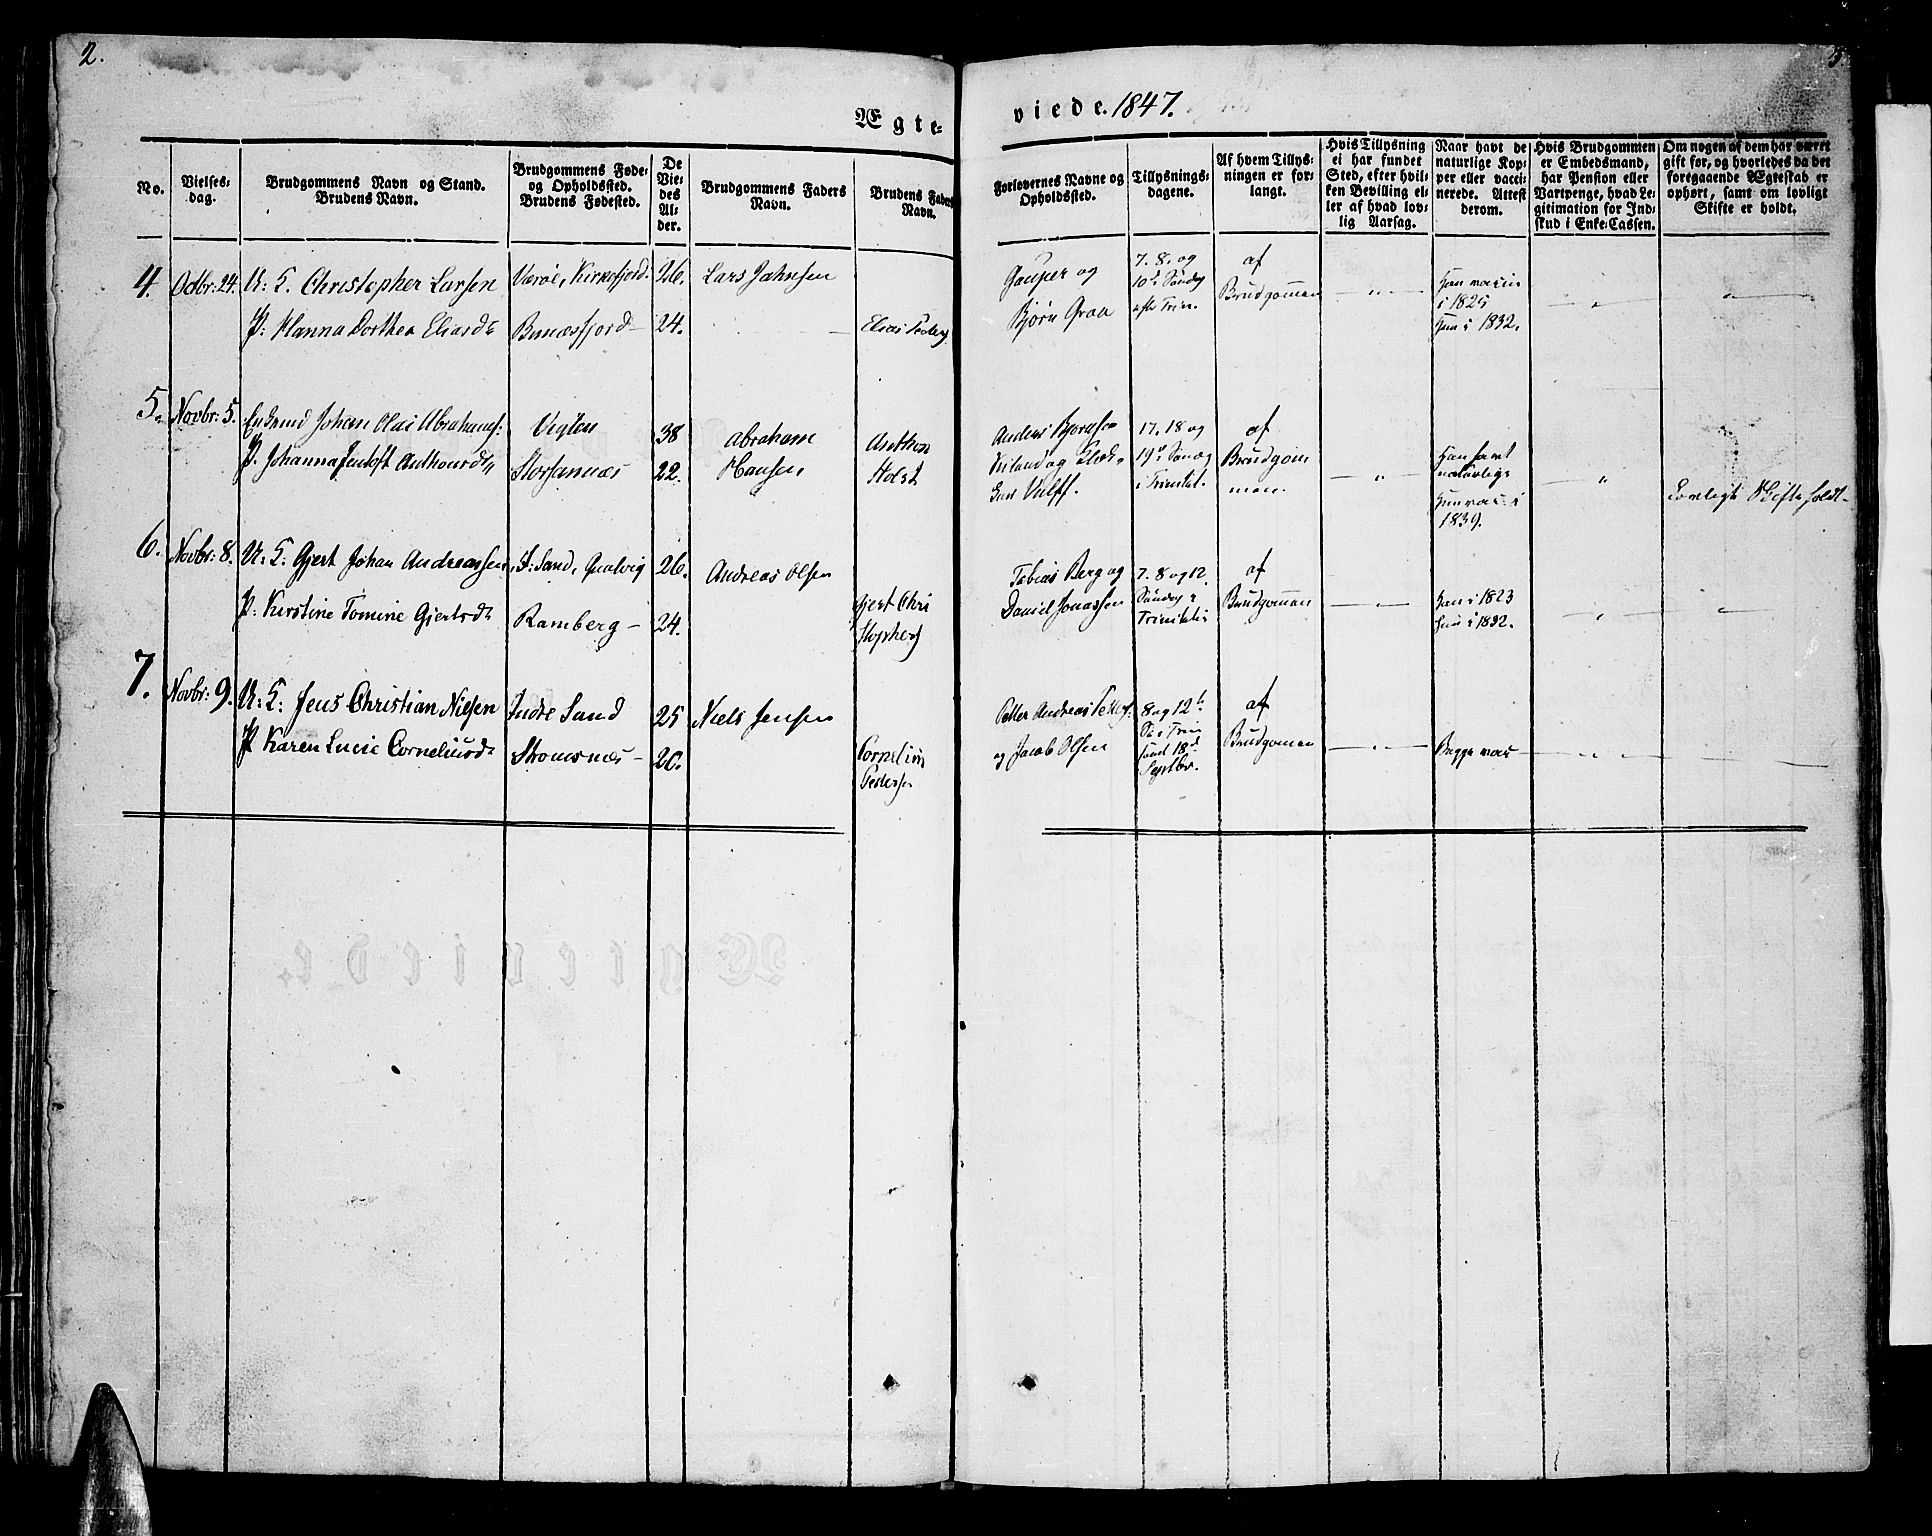 2.
3.
Ægte-
viede. 1847.
No.
Vielses-
dag.
Brudgommens Navn og Stand.
Brudens Navn.
Brudgommens Føde-
og Opholdssted.
Brudens Fødested.
De
Vie-
des
Al-
der.
Brudgommens Faders
Navn.
Brudens Faders
Navn.
Forlovernes Navne og
Opholdssted.
Tillysnings-
dagene.
Af hvem Tillys-
ningen er for-
langt.
Hvis Tillysning
ei har fundet
Sted, efter hvil-
ken Bevilling el-
ler af hvad lov-
lig Aarsag.
Naar havt de
naturlige Kop-
per eller vacci-
nerede. Attest
derom.
Hvis Brudgommen
er Embedsmand,
har Pension eller
Vartpenge, hvad Le-
gitimation for Ind-
skud i Enke-Cassen.
Om nogen af dem har været
gift før, og hvorledes da det
foregaaende Ægteskab er
ophørt, samt om lovligt
Skifte er holdt.
4.
Octbr: 24.
U: K. Christopher Larsen
P: Hanna Dorthea Eliasd
Værøe, Kirkefjord
Bunæsfjord
26.
24.
Lars Jahnsen
Elias Peders
og
Bjørn Graa
7. 8. og
10d Søndag
efter Trin.
af
Brudgommen
Han vac. in
i 1825
Hun i 1832.
5.
Novbr: 5.
Enkemd Johan Olai Abrahams:
P. Johanna Jentoft Anthonrd
Vigten
Storfannæs
38
22.
Abraham
Hansen
Anthon
Holst
Anders
og
Vulff.
17, 18 og
19d Søndag
i Trinitat.
af
Brudgom
men.
Han havt
naturlige
Hun vac: i
1839.
Lovligt Skifte holdt
6.
Novbr: 8.
U: K: Gjert Johan Andreassen
P: Kirstine Tomine Gjertsd
I: Sand, Qvalvig
Ramberg
26.
24.
Andreas Olsen
Gjert Chri
stophers
Tobias Berg og
Daniel Jonassen
7. 8 og 12
Søndag i
Trinitatis
af
Brudgommen
Han i 1823
Hun i 1832.
7.
Novbr: 9.
U: K: Jens Christian Nielsen
P Karen Lucie Corneliusd
Indre Sand
Strømsnæs
25
20.
Niels Jensen
Cornelius
Pedersen
Petter Andreas Petters:
og Jacob Olsen
8 og 12
S: i Trin
samt 18d
Septbr.
af
Brudgommen
Begge vac